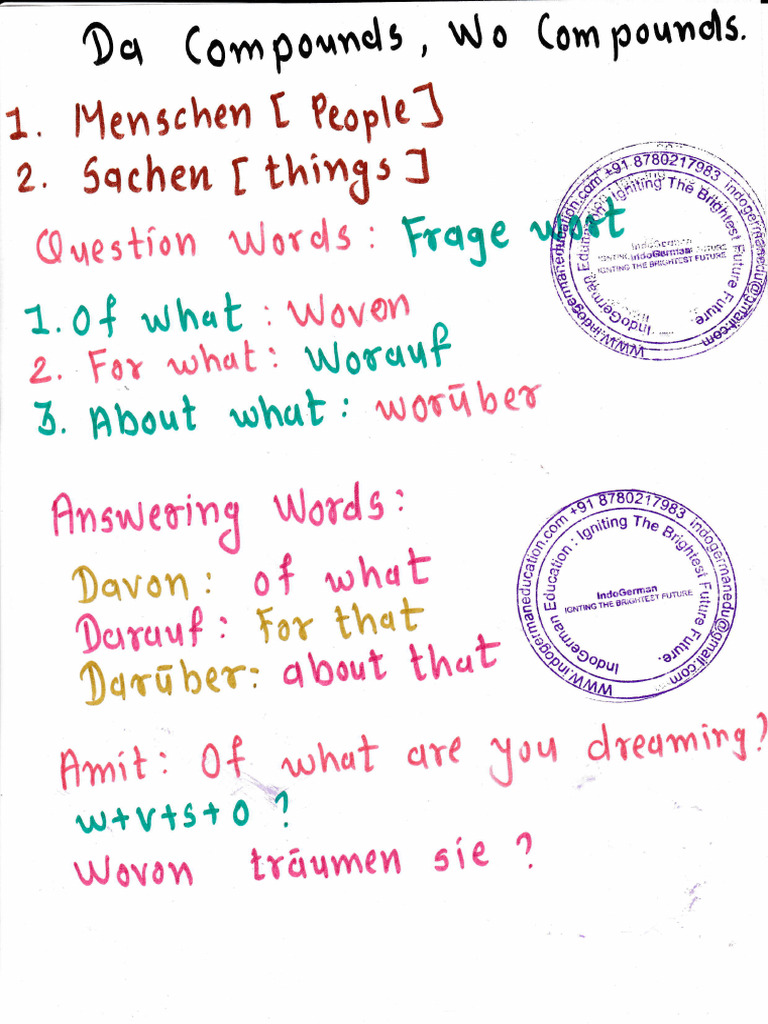 Da Compounds, Wo Compounds.
1. Menschen [People]
2. Sachen [things]
Question Words: Frage wort
1. Of what: Wovon
2. For what: Worauf
3. About what: worüber
Answering Words:
Davon: of what
Darauf: For that
Darüber: about that
Amit: Of what are you dreaming?
w+v+s+o?
Wovon träumen sie?
www.indogermaneducation.com +91 8780217983 indogermanedu@gmail.com
IndoGerman Education : Igniting The Brightest Future Future.
IndoGerman
IGNTING THE BRIGHTEST FUTURE
www.indogermaneducation.com +91 8780217983 indogermanedu@gmail.com
IndoGerman Education : Igniting The Brightest Future Future.
IndoGerman
IGNTING THE BRIGHTEST FUTURE